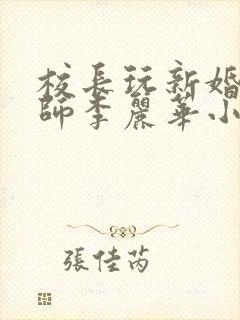 校長玩新婚
師李麗華小
張佳芮